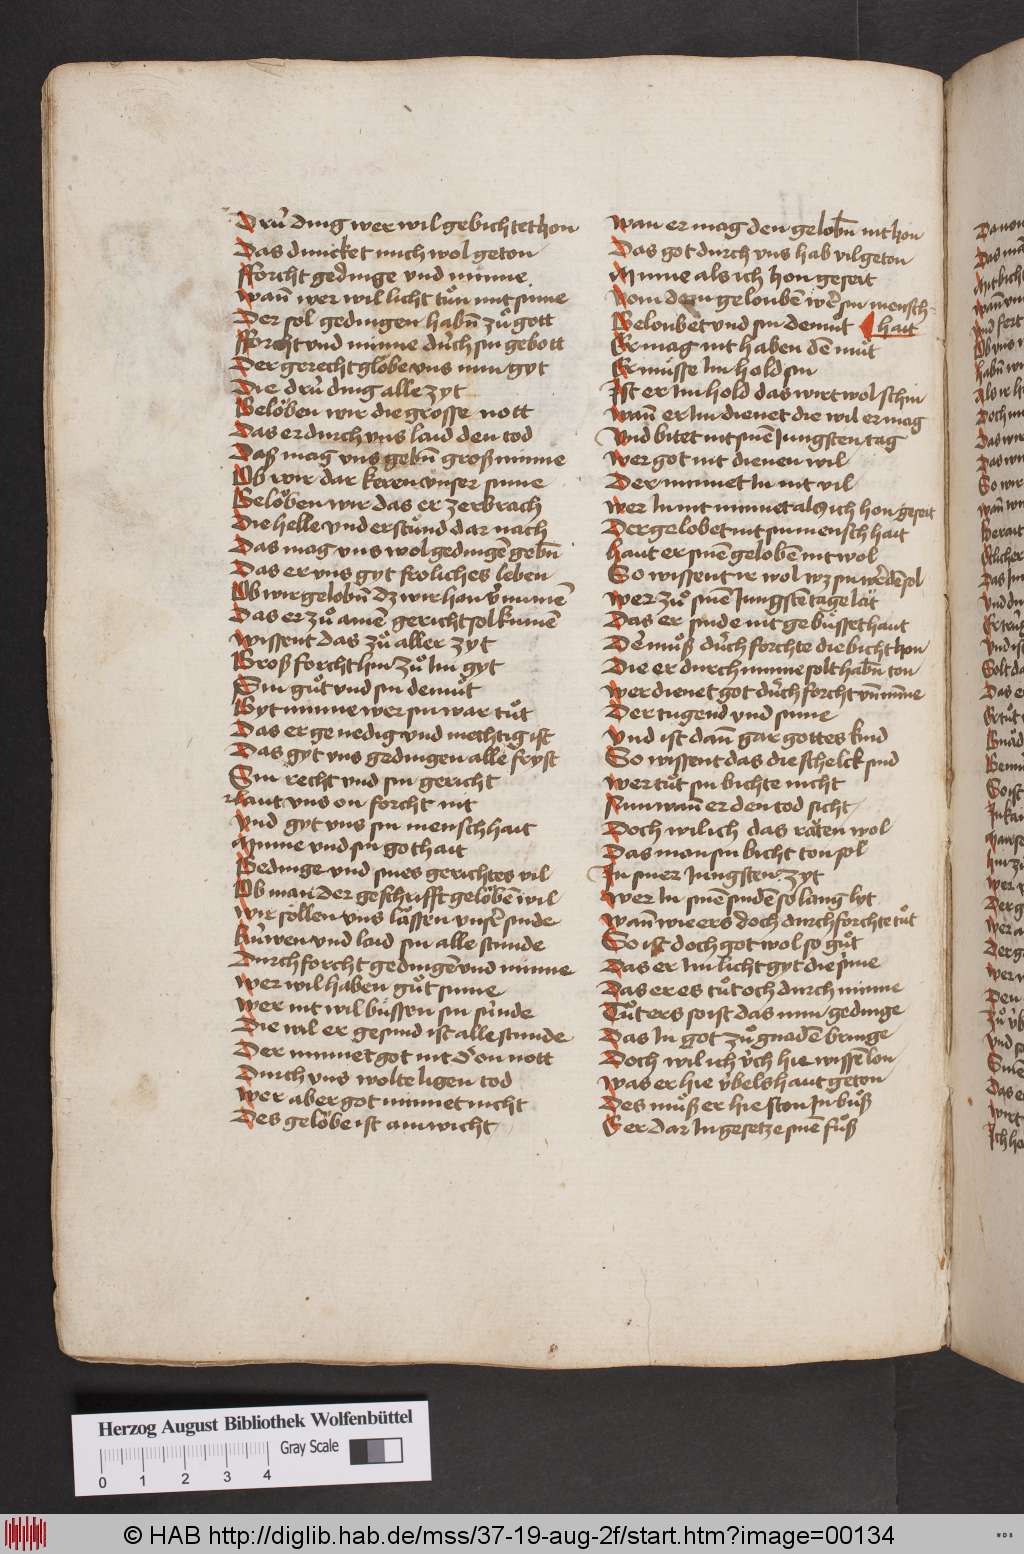 Drú ding wer wil gebichtet hon
Das duncket mich wol geton
fforcht gedinge vnd minne
Wann̄ wer wil licht tůn mit sinne
Der sol gedingen habn̄ zů gott
fforcht vnd minne durch sin gebott
Der gerecht glöbe vns nun gyt
Die drú ding alle zyt
Gelöben wir die grosse nott
Das er durch vns laid den tod
Daß mag vns gebn̄ groß minne
Ob wir dar keren vnser sinne
Gelöben wir das er zerbrach
Die helle vnd erstůnd dar nach
Das mag vns wol gedingē gebn̄
Das er vns gyt froliches leben
Ob wir gelobn̄ dz wir han v̄nimē
Das er zů ainē gericht sol kumē
Wissent das zů aller zyt
Groß forcht hin zů Im gyt
Sin gůt vnd sin demůt
Gyt minne wer sin war tůt
Das er genedig vnd mechtig ist
Das gyt vns gedingen alle fryst
Sin recht vnd sin gericht
Laut vns on forcht nit
Vnd gyt vns sin menschhait
Minne vnd sin gothait
Gedinge vnd sines gerichtes vil
Ob man der geschrifft gelöbē wil
Wir söllen vns lässen vnser sinde
Rúwen vnd laid sin alle stunde
Durch forcht gedingē vnd minne
Wer wil haben gůt sinne
Wer nit wil büssen sin súnde
Die wil er gesund ist alle stunde
Der minnet got nit von nott
Durch vns wolte ligen tod
Wer aber got minnet nicht
Des gelöbe ist ain wicht
Wan er mag den gelobn̄ nit hon
Das got durch vns hab vil geton
Minne als ich hon geseit
Vom dem gelouben wer sin mensch-
hait
Geloubet vnd sin demůt
Er mag nit haben dē můt
Er müsse Im hold sin
Ist er Im hold das wirt wol schin
Wann̄ er Im dienet die wil er mag
Vnd bitet nit sinē Jungsten tag
Wer got nit dienen wil
Der minnet In nit vil
Wer In nit minnet als ich hon geseit
Der gelobet nit sin menschhait
Haut er sinē gelobē nit wol
So wissent ir wol wz sin werdē sol
Wer zů sinē Jungstē tage lät
Das er sinde nit gebüsset haut
Der můß durch forchte die bicht hon
Die er durch minne solt habn̄ ton
Wer dienet got durch forcht vn̄ miñe
Der tugend vnd sinne
Vnd ist dañ gar gottes kind
So wissent das die schelck sind
Wer tůt sin bichte nicht
Nun wann̄ er den tod sicht
Doch wil ich das räten wol
Das man sin bicht ton sol
In siner Jungsten zyt
Wer In sinē sindē so lang lyt
Wann̄ wie ers doch durch forchte tůt
So ist doch got wol so gůt
Das er Im licht gyt die sinne
Das er es tůt och durch minne
Tůt ers so ist das min gedinge
Das In got zů gnadē bringe
Doch wil ich v́ch hie wissē lon
Was er hie v́bels haut geton
Des můß er hie ston In bůß
Ger dar In gesetze sinē fůß
Herzog August Bibliothek Wolfenbüttel
Gray Scale
0 1 2 3 4
© HAB http://diglib.hab.de/mss/37-19-aug-2f/start.htm?image=00134